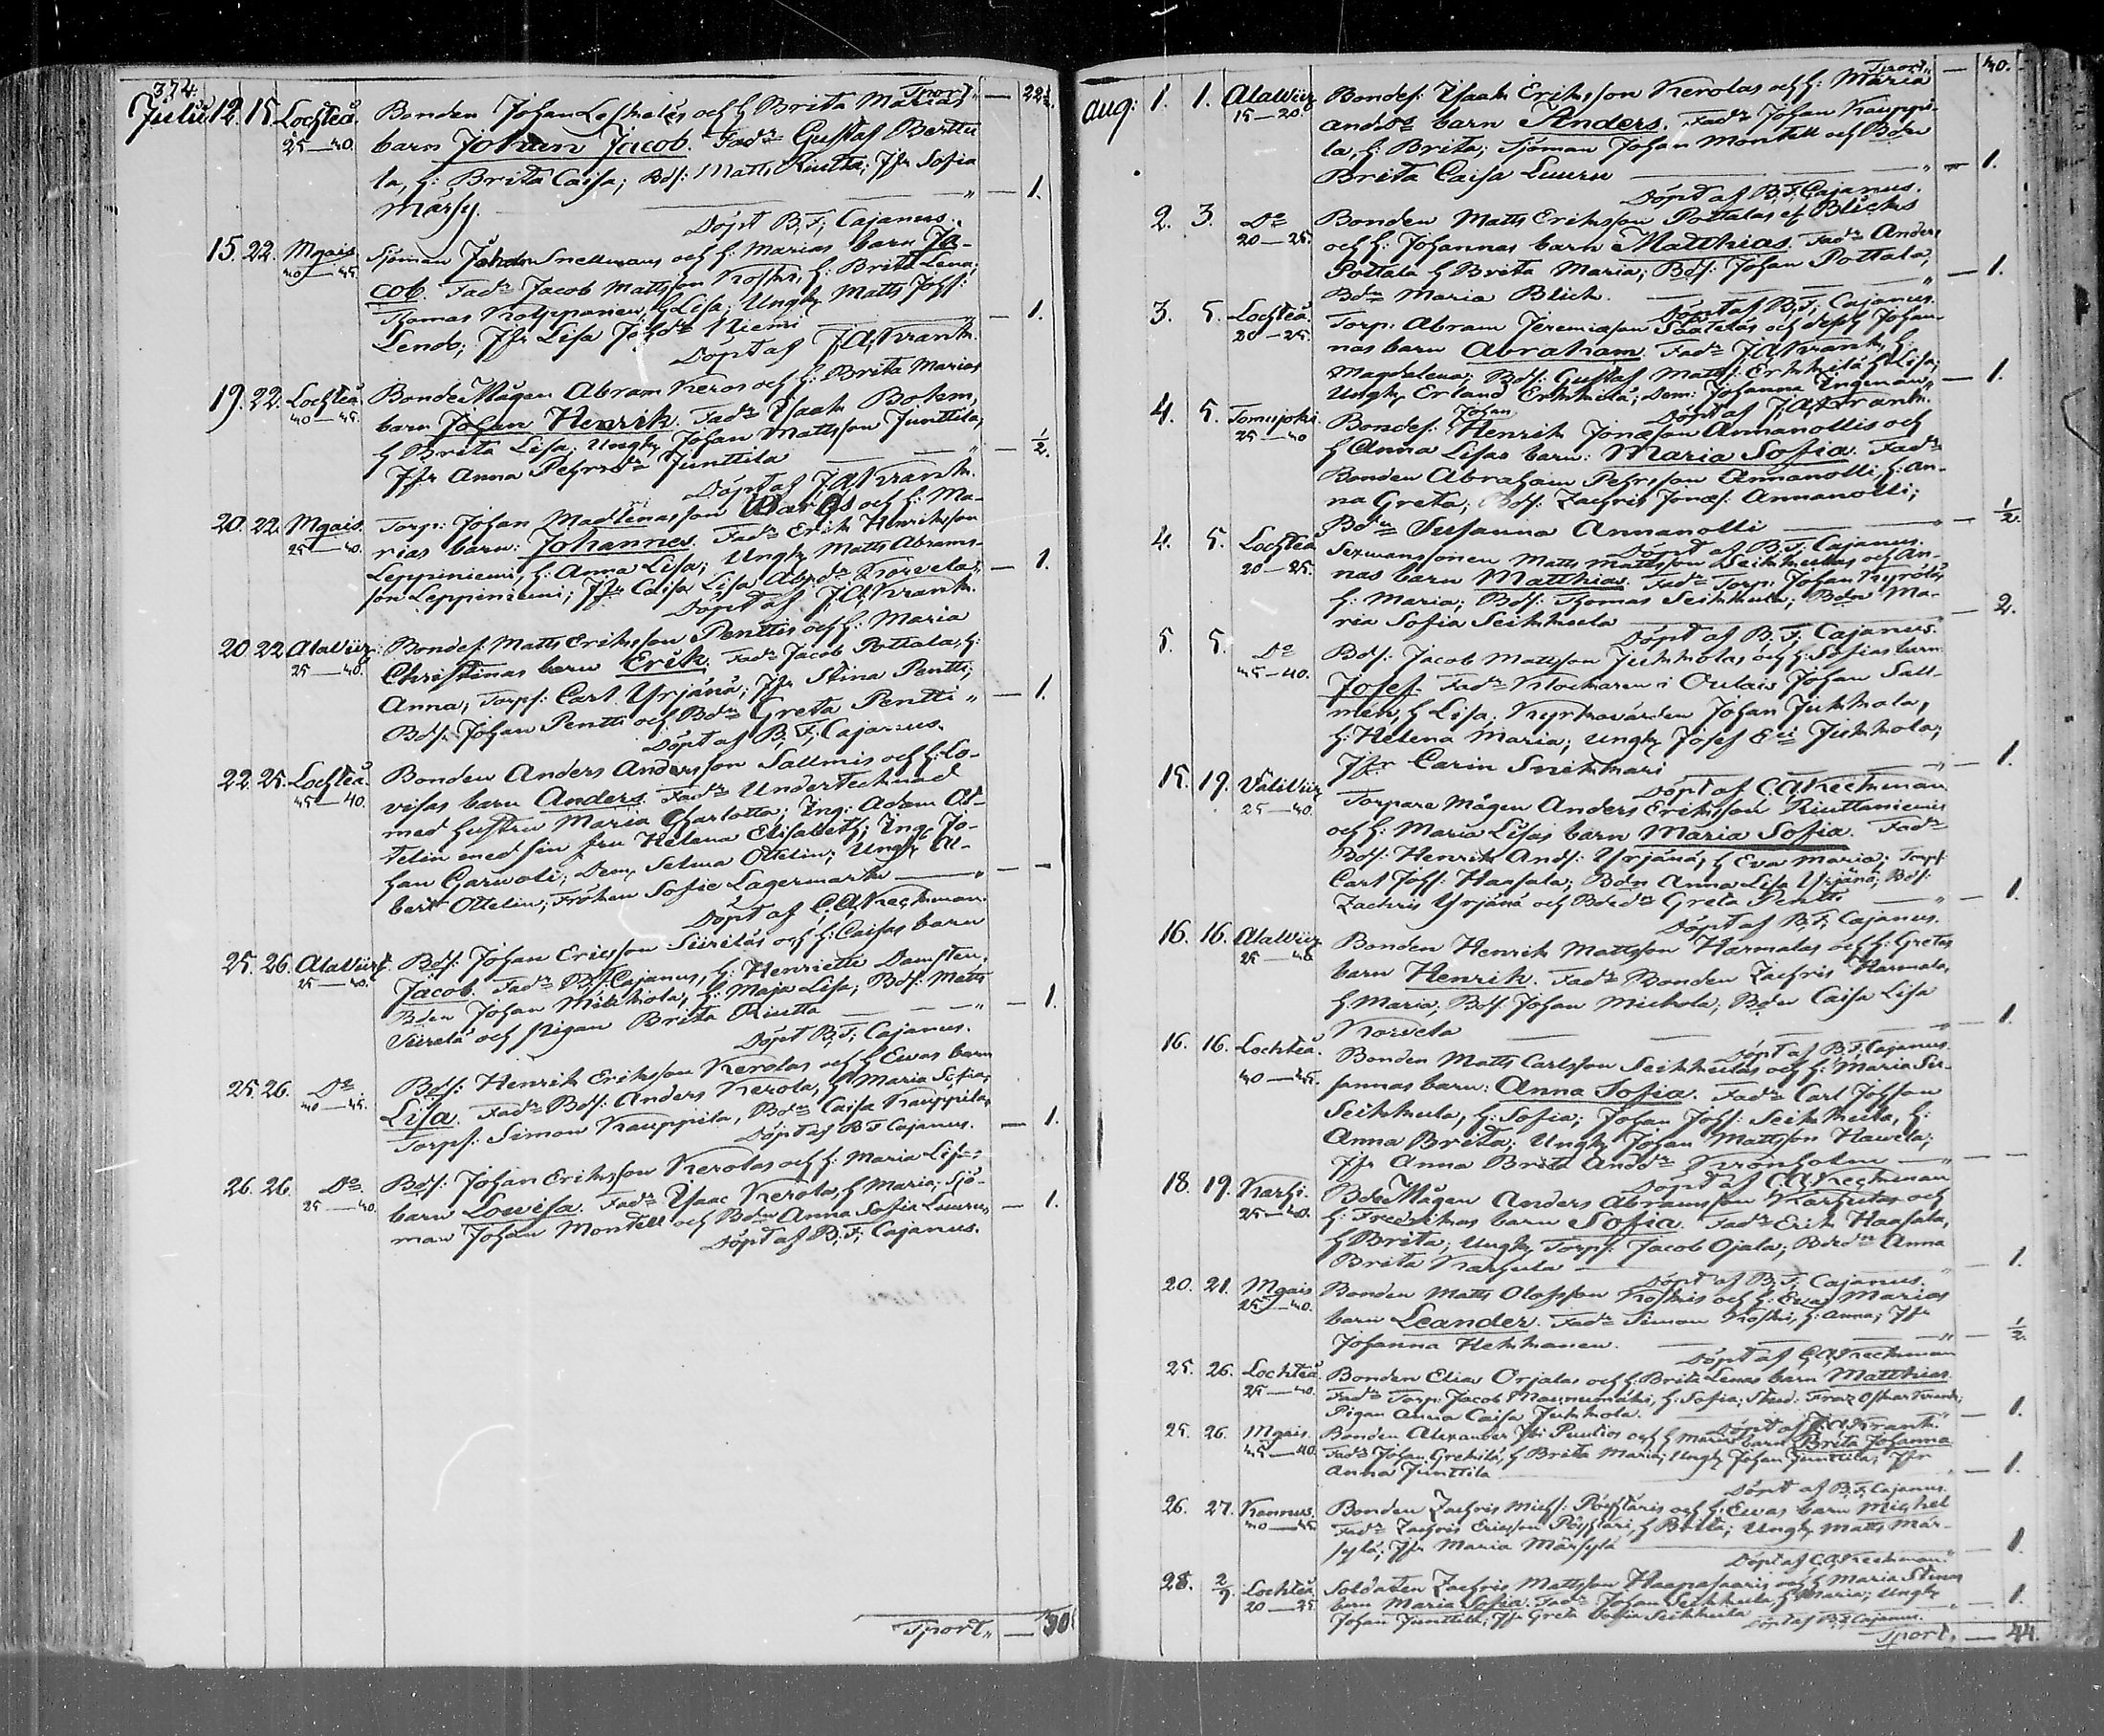 374.
Tsport " — 22½.
Julii 12. 15. Lochteå Bonden Johan Leskeläs och h Brita Marias
25—40. barn Johan Jacob. Fadr Gustaf Berttu
la, h: Brita Caisa; Bds: Matts Riutta; Jfr Sofia
Märsy. " — 1.
Döpt B. F. Cajanus.
15. 22. Mgais Sjöman Johan Snellmans och h: Marias barn Ja-
40—45. cob. Fadr Jacob Mattsson Koski, h: Brita Lena;
Thomas h Lisa; Ungk Matts Johs:
Lenob; Jfr Lisa Niemi " — 1.
Döpt af J. A. Krank.
19. 22. Lochteå. Bonde Mågen Abram Keros och h: Brita Marias
40—45. barn Johan Henrik. Fadr Isaak Bohm,
h Brita Lisa; Ungk Johan Mattsson Junttila;
Jfr Anna Pehrsdr Junttila " — ½.
Döpt af J. A. Krank.
20. 22. Mgais. Torp: Johan Madlenasson och h: Ma-
25—40. rias barn: Johannes. Fadr Erik Henriksson
Leppiniemi, h: Anna Lisa; Ungk Matts Abrams-
son Leppiniemi; Jfr Caisa Lisa Korvela " — 1.
Döpt af J. A. Krank.
20. 22. Alaviirz Bondes. Matts Eriksson Penttis och h: Maria
25—40. Christinas barn Erik. Fadr Jacob Pottala, h:
Anna, Torps: Carl Yrjänä; Jfr Stina Pentti;
Bds: Johan Pentti och Bdn Greta Pentti " — 1.
Döpt af B. F. Cajanus.
22. 25. Lochteå. Bonden Anders Andersson Sallmis och h: Lo-
45—40. visas barn Anders. Fadr Undertecknad
med hustru Maria Charlotta; Ing: Adam Ot-
telin med sin fru Helena Elisabeth; Ing: Jo-
han Garvoli; Dem. Selma Ottelin; Ungk Al-
bert Ottelin; Fröken Sofie Lagermark " — —
Döpt af C. A. Keckman.
25. 26. Alaviirz. Bds: Johan Ericsson Siiriläs och h: Caisas barn
25—40. Jacob. Fadr B. F. Cajanus, h: Henriette Damsten;
Bden Johan Mickola, h: Maja Lisa; Bds: Matts
Siirilä och pigan Brita Riutta " — 1.
Döpt B. F. Cajanus.
25. 26. Do Bds: Henrik Eriksson Kerolas och h Ewas barn
40—45. Lisa. Fadr Bds: Anders Kerola, h Maria Sofia;
Torps: Simon Kauppila, Bdn Caisa Kauppila, — 1.
Döpt af B F Cajanus.
26. 26. Do. Bds: Johan Eriksson Kerolas och h: Maria Lisas
25—40. barn Lowisa. Fadr Isaac Kerola, h Maria; Sjö-
man Johan Montell och Bdn Anna Sofia Luuru, — 1.
Döpt af B. F. Cajanus.
Tsport " — 30
Tsport " — 40.
Aug: 1. 1. Alaviirz Bondes: Isaak Eriksson Kerolas och h: Maria
15—20. Anddr barn Anders. Fadr Johan Kauppi-
la, h: Brita; Sjöman Johan Montell och Bdn
Brita Caisa Luuru " — 1.
Döpt af B. F. Cajanus.
2. 3. Do Bonden Matts Eriksson Pottalas et Blicks
20—25. och h: Johannas barn Matthias. Fadr Anders
Pottala h Brita Maria; Bds: Johan Pottala;
Bdn Maria Blick. " — 1.
Döpt af B. F. Cajanus.
3. 5. Lochteå. Torp: Abram Jeremiasson och Johan-
20—25. nas barn Abraham. Fadr J A Krank, h:
Magdalena; Bds: Gustaf Matts: Erkkilä h Lisa;
Ungk Erland Erkkilä; Dem: Johanna Ingman " — 1.
Döpt af J. A. Krank.
4. 5. Tomujoki Bondes: Johan Henrik Jonasson Annanollis och
25—40 h Anna Lisas barn: Maria Sofia. Fadr
Bonden Abraham Pehrsson Annanolli h: An-
na Greta; Bds: Zachris Jonas: Annanolli;
Bdn Susanna Annanolli — ½.
Döpt af B. F. Cajanus.
4. 5. Lochteå Sexmanssonen Matts Mattsson Seikkulas och An-
20—25. nas barn Matthias. Fadr Torp. Johan Kyrölä,
h: Maria; Bds: Thomas Seikkula; Bdn Ma-
ria Sofia Seikkula — 2.
Döpt af B. F. Cajanus.
5. 5. Do Bds: Jacob Mattsson Jukkolas och h: Sofias barn
45—40. Josef. Fadr Klockaren i Oulais Johan Sall-
men, h Lisa; Kyrkovärden Johan Jukkola,
h: Helena Maria; Ungk Josef Jukkola;
Jfr Carin Snikkari " — 1.
Döpt af C A Keckman
15. 19. Väliviirz Torpare Mågen Anders Eriksson Riuttaniemis
25—40. och h: Maria Lisas barn Maria Sofia. Fadr
Bds: Henrik Ands: Yrjänä, h Eva Maria; Torps:
Carl Johs: Haasala; Bdn Anna Lisa Yrjänä; Bds:
Zachris Yrjänä och Greta Pentti " — 1.
Döpt af B. F. Cajanus.
16. 16. Alaviirz Bonden Henrik Mattsson Harmalas och h: Gretas
25—40 barn Henrik. Fadr Bonden Zachris Harmala,
h Maria; Bds: Johan Mickola; Bdn Caisa Lisa
Korvela " — 1.
Döpt af B. F. Cajanus.
16. 16. Lochteå. Bonden Matts Carlsson Seikkulas och h: Maria Su-
40—45. sannas barn: Anna Sofia. Fadr Carl Johsson
Seikkula, h: Sofia; Johan Johs: Seikkula, h:
Anna Brita; Ungk Johan Mattsson Hawela;
Jfr Anna Brita Anddr Kronholm " — —
Döpt af C. A. Keckman
18. 19. Karhi. Bde Mågen Anders Abramsson Karhulas och
25—40. h: Fredrikas barn Sofia. Fadr Erik Haasala,
h Brita; Ungk Torps: Jacob Ojala; Anna
Brita Karhula " — 1.
Döpt af B. F. Cajanus.
20. 21. Mgais Bonden Matts Olofsson Koskis och h: Ewa Marias
25—40. barn Leander. Fadr Simon Koski, h: Anna; Jfr
Johanna Hekkanen. " — ½
Döpt af C. A. Keckman
25. 26. Lochteå. Bonden Elias Orjalas och h: Brita Lenas barn Matthias
25—40. Fadr Torp: Jacob h: Sofia; Stud: Oskar
Pigan Anna Caisa Jukkola. — 1.
Döpt af J. A. Krank.
25. 26. Mgais. Bonden Alexander och h Marias barn Brita Johanna
45—40. Fadr Johan h Brita Maria; Ungk Johan Junttila; Jfr
Anna Junttila — 1.
Döpt af B. F. Cajanus.
26. 27. Kannus. Bonden Zachris Michs: Pöyhtäris och h: Ewas barn Michel
40—45. Fadr Zachris Ericsson Pöyhtäri, h Brita; Ungk Matts Mär-
sylä; Jfr Maria Märsylä — 1.
Döpt af C. A. Keckman.
28. 2/9 Lochteå Soldaten Zachris Mattsson Haapasaaris och h Maria Stinas
20—25 barn Maria Sofia. Fadr Johan Seikkula, h Maria; Ungk
Johan Junttila; Jfr Greta Sofia Seikkula " — 1.
Döpt af B. F. Cajanus.
Tsport " — 44.